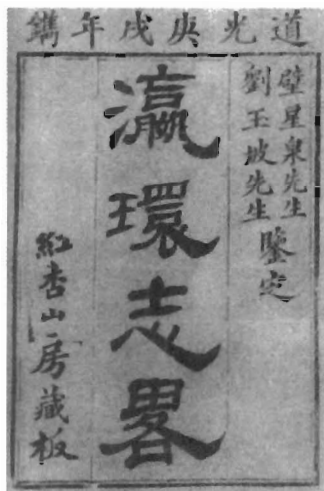 道光庚戌年鐫
壁星泉先生
劉玉坡先生
鑒定
瀛環志畧
紅杏山房藏板